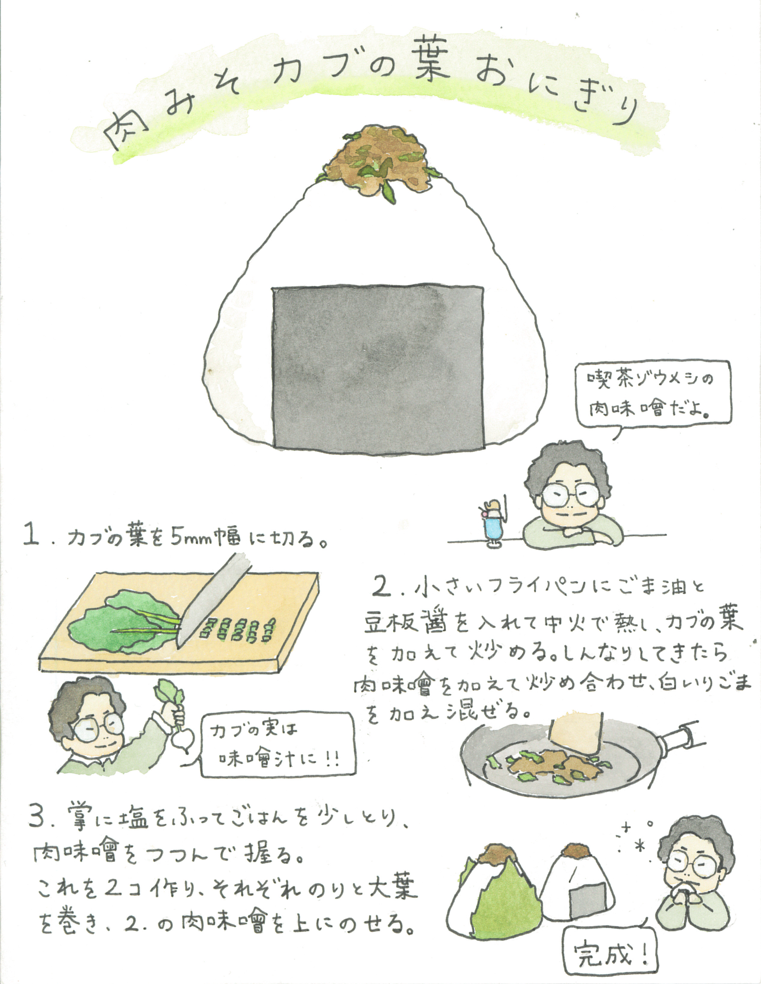 肉みそカブの葉おにぎり
喫茶ゾウメシの
肉味噌だよ。
1. カブの葉を5mm幅に切る。
2. 小さいフライパンにごま油と
豆板醤を入れて中火で熱し、カブの葉
を加えて炒める。しんなりしてきたら
肉味噌を加えて炒め合わせ、白いりごま
を加え混ぜる。
カブの実は
味噌汁に!!
3. 掌に塩をふってごはんを少しとり、
肉味噌をつつんで握る。
これを2コ作り、それぞれのりと大葉
を巻き、2.の肉味噌を上にのせる。
完成!